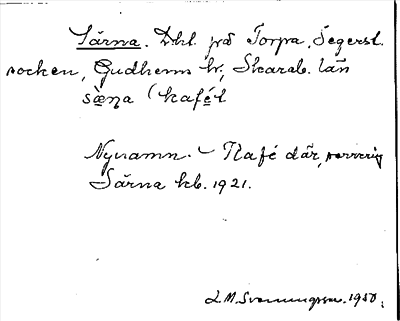 Särna. Dkl. på Torpa, Segerst.
socken, Gudhems hd, Skarab. län
sæ̀ṇa (kafét
Nynamn. – Kafé där, servering
Särna kb. 1921.
L.M. Svenungsson. 1950.